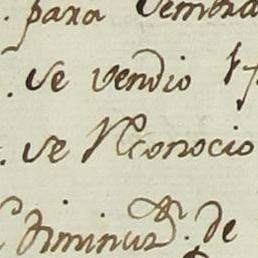 para Sembra
se vendio 17
se Reconocio
Diminuz.n de